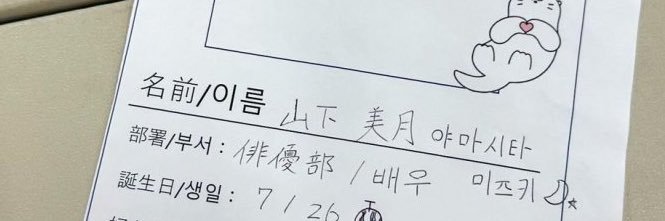 名前/이름 山下 美月 야마시타 미즈키
部署/부서 : 俳優部 / 배우
誕生日/생일 : 7 / 26